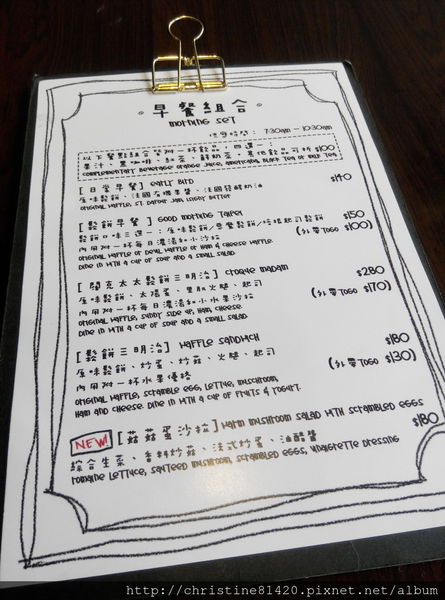 早餐組合
morning set
供應時間： 7:30am - 10:30am
以下餐點組合皆附一杯飲品，四選一：
果汁、黑咖啡、紅茶、鮮奶茶，其他飲品可折$100
complementary beverage orange juice, americano, black tea or milk tea
[日常早餐] early bird $140
原味鬆餅、法國有機果醬、法國發酵奶油
original waffle, st. dalfour jam, luxury butter
[鬆餅早餐] Good morning Taipei $150
鬆餅口味三選一：原味鬆餅/惡魔鬆餅/培根起司鬆餅 (外帶TOGO $100)
內用附一杯每日濃湯和小沙拉
original waffle or devil waffle or ham & cheese waffle.
Dine in with a cup of soup and a small salad
[開克太太鬆餅三明治] croque madam $280
原味鬆餅、太陽蛋、里肌火腿、起司 (外帶TOGO $170)
內用附一杯每日濃湯和小水果沙拉
original waffle, sunny side up, ham, cheese
Dine in with a cup of soup and a small salad.
[鬆餅三明治] waffle sandwich $180
原味鬆餅、炒蛋、炒菇、火腿、起司 (外帶TOGO $130)
內用附一杯水果優格
original waffle, scramble egg, lettuce, mushroom,
ham and cheese. Dine in with a cup of fruits & yogurt.
NEW! [菇菇蛋沙拉] warm mushroom salad with scrambled eggs
綜合生菜、香料炒菇、法式炒蛋、油醋醬 $180
romaine lettuce, sauteed mushroom, scrambled eggs, vinaigrette dressing
http://christine81420.pixnet.net/album